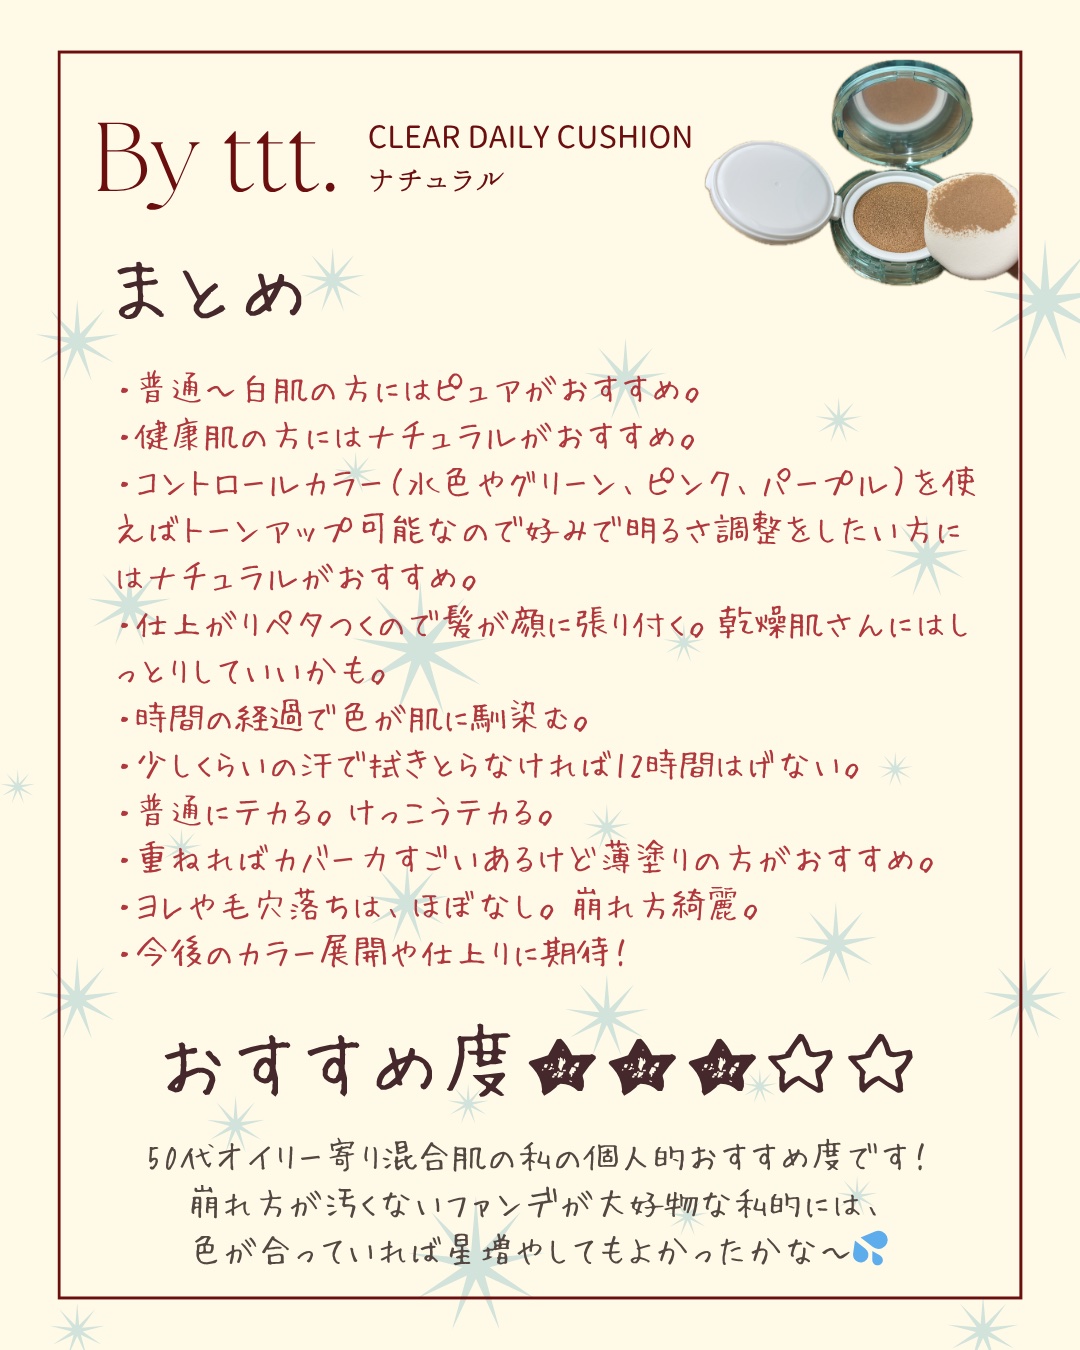 By ttt. CLEAR DAILY CUSHION
ナチュラル
まとめ
・普通〜白肌の方にはピュアがおすすめ。
・健康肌の方にはナチュラルがおすすめ。
・コントロールカラー(水色やグリーン、ピンク、パープル)を使
えばトーンアップ可能なので好みで明るさ調整をしたい方に
はナチュラルがおすすめ。
・仕上がりペタつくので髪が顔に張り付く。乾燥肌さんにはし
っとりしていいかも。
・時間の経過で色が肌に馴染む。
・少しくらいの汗で拭きとらなければ12時間はげない。
・普通にテカる。けっこうテカる。
・重ねればカバーカすごいあるけど薄塗りの方がおすすめ。
・ヨレや毛穴落ちは、ほぼなし。崩れ方綺麗。
・今後のカラー展開や仕上りに期待!
おすすめ度★★★☆☆
50代オイリー寄り混合肌の私の個人的おすすめ度です!
崩れ方が汚くないファンデが大好物な私的には、
色が合っていれば星増やしてもよかったかな〜💦